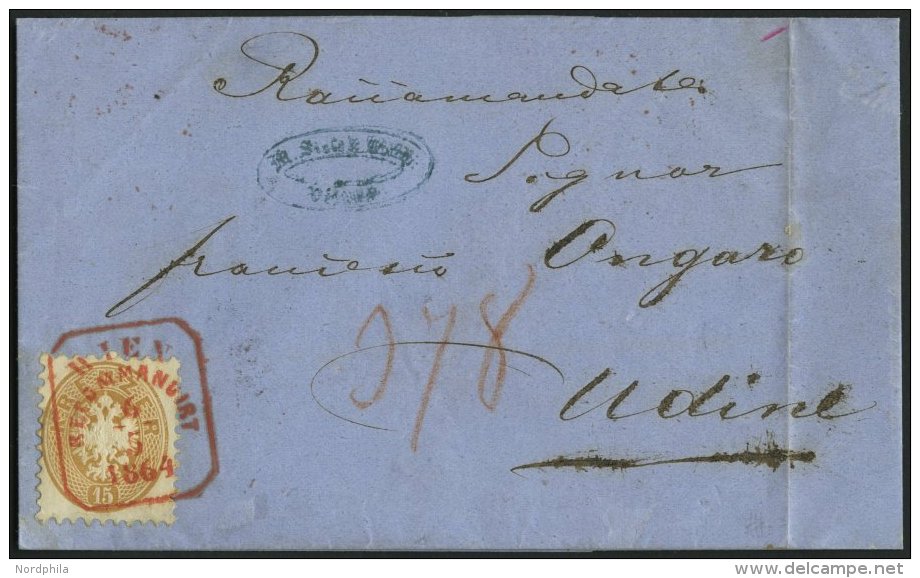 Raccomandata
Signor
Francesco Ongaro
378
Udine
WIEN
RECOMMANDIRT
6
12
1864
KREUZER
15
Nordphila
www.delcampe.net